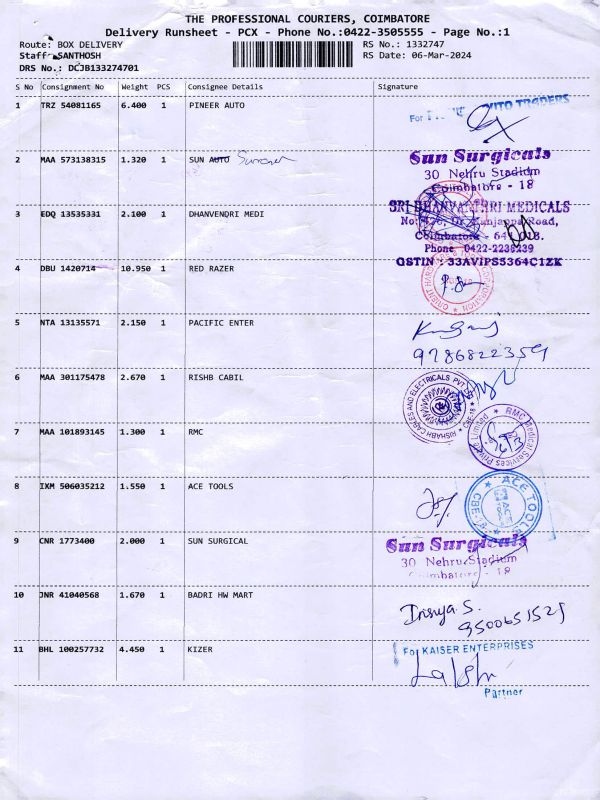 THE PROFESSIONAL COURIERS, COIMBATORE
Delivery Runsheet - PCX - Phone No.:0422-3505555 - Page No.:1
Route: BOX DELIVERY
RS No.: 1332747
Staff: SANTHOSH
RS Date: 06-Mar-2024
DRS No.: DCJB133274701
S No Consignment No Weight PCS Consignee Details Signature
1 TRZ 54081165 6.400 1 PINEER AUTO
For AUTO TRADERS
2 MAA 573138315 1.320 1 SUN AUTO
Sun Surgicals
30 Nehru Stadium
Coimbatore - 18
3 EDQ 13535331 2.100 1 DHANVENDRI MEDI
SRI DHANVANTHRI MEDICALS
Coimbatore - 641 018.
Phone 0422-2238239
GSTIN : 33AVIPS5364C1ZK
4 DBU 1420714 10.950 1 RED RAZER
5 NTA 13135571 2.150 1 PACIFIC ENTER
9786822359
6 MAA 301175478 2.670 1 RISHB CABIL
RISHABH CABLES AND ELECTRICALS PVT
7 MAA 101893145 1.300 1 RMC
RMC Medical Services Private Limited
8 IXM 506035212 1.550 1 ACE TOOLS
ACE TOOLS
9 CNR 1773400 2.000 1 SUN SURGICAL
Sun Surgicals
30 Nehru Stadium
Coimbatore - 18
10 JNR 41040568 1.670 1 BADRI HW MART
9500651529
11 BHL 100257732 4.450 1 KIZER
For KAISER ENTERPRISES
Partner